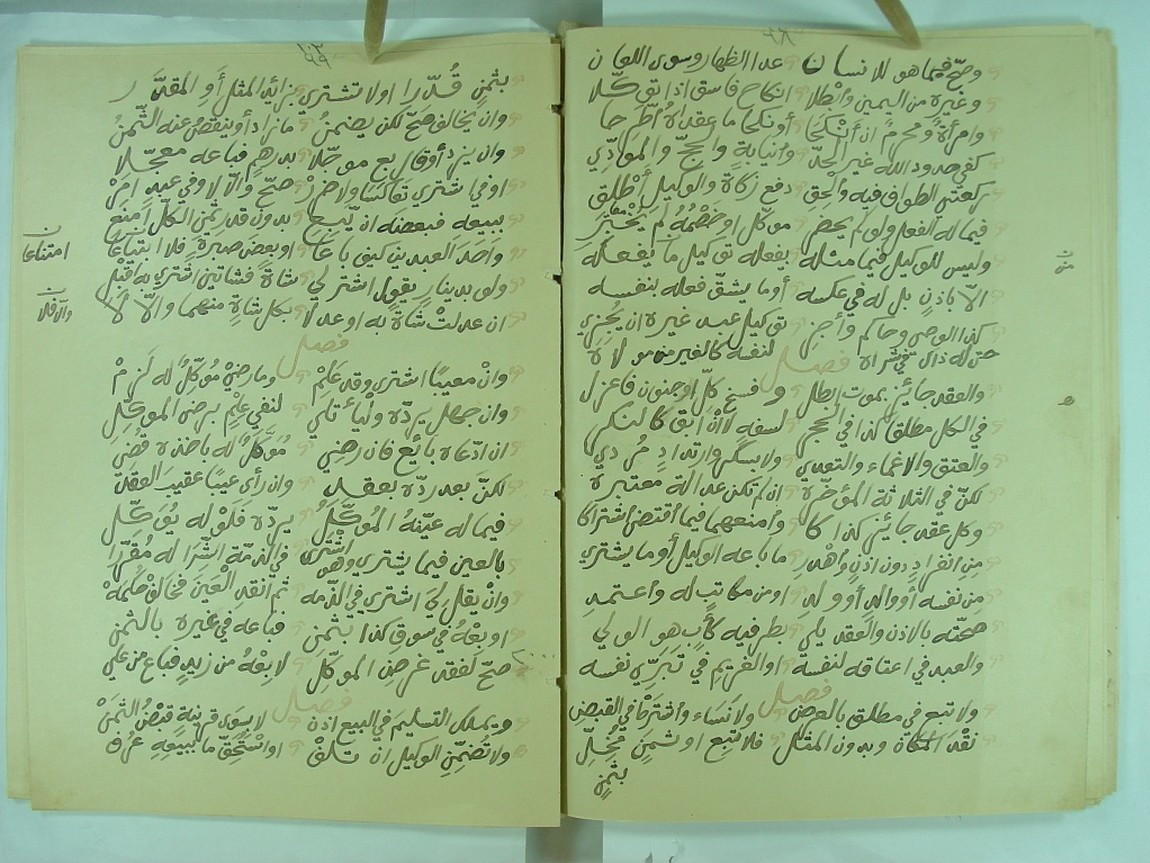 ٩٨
وصحّ فيما هو للانسان عدا الظهار وسوى اللعان
وغيره من اليمين وابطلا انكاح فاسق اذا تق كلا
وامرأة ومحرم ان انكحا أو نكحا ما عقداه اطرحا
كفى حدود الله غير الجد وانيابة والحج والمؤدي
ركعتي الطواف فيه والحق دفع زكاة والوكيل أطلق
فيما له الفعل ولو لم يحضر موكل او خصمه لم يخبر
وليس للوكيل فيما مثله يفعله توكيل ما يفعله
الا باذن بل له في عكسه أو ما يشق فعله بنفسه
كذا الوصي وحاكم وأجز توكيل عبد غيره ان يجزي
حق له ذاك في شراه لنفسه كالغير من مولاه
فصل
والعقد جائز بموت ابطل وفسخ كل او جنون فاعزل
في الكل مطلقا كذا في الحجر لسفه لا ان ابق كالسكر
والعتق والاغماء والتعدي ولا بسكر وارتداد مردي
لكن في الثلاثة المؤخره ان لم تكن عدالة معتبره
وكل عقد جائز كذا كا وامنعهما فيما أقتضى اشتراكا
من انفراد دون اذن واهدر ما باعه الوكيل أو ما يشتري
من نفسه أو والد أو ولد او من مكاتب له واعتمد
صحته بالاذن والعقد يلي بطرفيه كأب هو الولي
والعبد في اعتاقه لنفسه او الغريم في تبري نفسه
فصل
ولا تبع في مطلق بالعرض ولا نساء واشترط في القبض
نقد المكان وبدون المثل فلا تبع او ثمن مجل
بثمن
٩٩
بثمن قدّرا او لا تشتري بزائد المثل أو المقدّر
وان يخالف صح لكن يضمن ما زاد أو ينقص عنه الثمن
وان يزد أو قال بع موجلا بدرهم فباعه معجلا
او في اشترى تعاكسا ولا ضرر صح والا لا وفي عبد امر
ببيعه فبعضه ان يبع بدون قدر ثمن الكل امنع
واحد العبدين كيف باعا او بعض صبرة فلا ابتياعا
امتناعا
ولو بدينار يقول اشتر لي شاة فشاتين اشترى به قبل
ان عدلت شاة به او عدلا بكل شاة منهما والا لا
والا فلا
فصل
وان معيبا اشترى وقد علم وما رضي موكل له لزم
وان جهل يرده ولياء تلي لنفي علم برضى الموكل
ان ادعاه بائع فان رضي موكل له باخذه قضي
لكن بعد رده بعقد وان رأى عيبا عقيب العقد
فيما له عينه الموكل يرده فلو له يوكل
بالعين فيما يشتري وهو اشترى في الذمة الشرا له مقررا
وان يقل لي اشتري في الذمه ثم انقد العين فخالف حكمه
او بعه في سوق كذا بثمن فباعه في غيره بالثمن
صح لفقد غرض الموكل لا بعه من زيد فباع من علي
فصل
ويملك التسليم في البيع اذن لا بسوى قرينة قبض الثمن
ولا تضمن الوكيل ان تلف او استحق ما يبيعه عرف